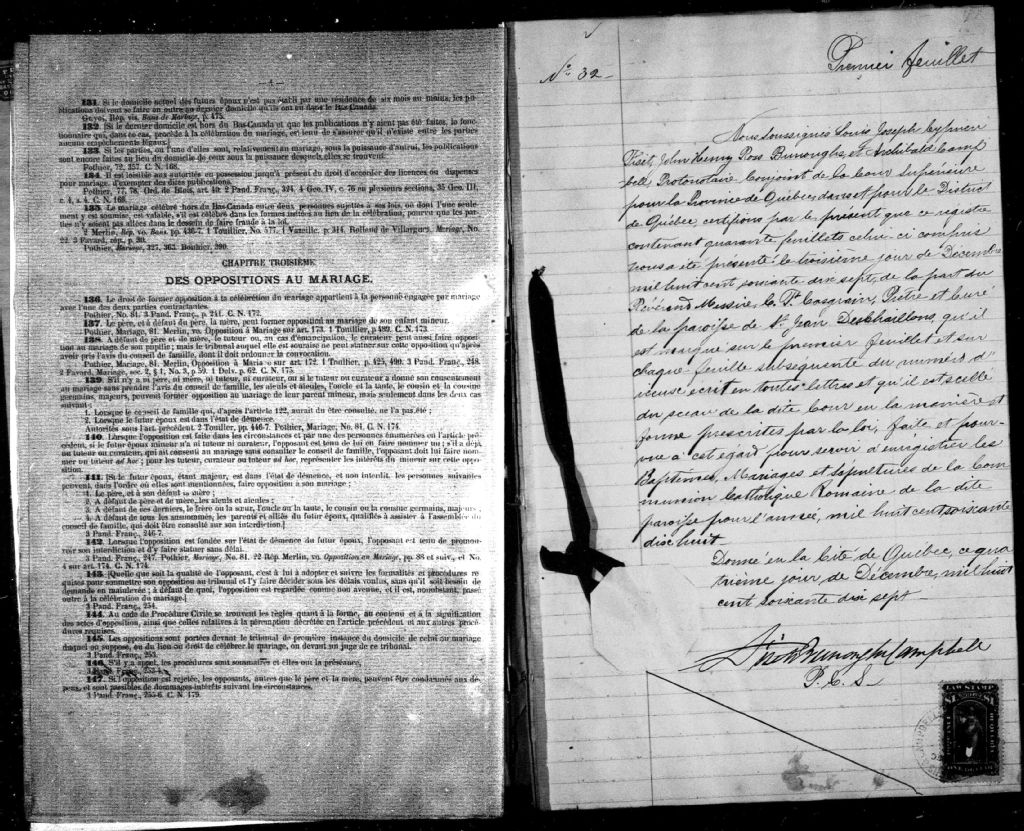 — 4 —
131. Si le domicile actuel des futurs époux n'est pas établi par une résidence de six mois au moins, les publications doivent se faire en outre au dernier domicile qu'ils ont eu dans le Bas-Canada.
Guyot, Rép. vis. Bans de Mariage, p. 475.
132. [Si le dernier domicile est hors du Bas-Canada et que les publications n'y aient pas été faites, le fonctionnaire qui, dans ce cas, procède à la célébration du mariage, est tenu de s'assurer qu'il n'existe entre les parties aucuns empêchements légaux.]
133. Si les parties, ou l'une d'elles, sont, relativement au mariage, sous la puissance d'autrui, les publications sont encore faites au lieu du domicile de ceux sous la puissance desquels elles se trouvent.
Pothier, 72, 357. C. N. 168.
134. Il est loisible aux autorités en possession jusqu'à présent du droit d'accorder des licences ou dispenses pour mariage, d'exempter des dites publications.
Pothier, 77, 78. Ord. de Blois, art. 40. 2 Pand. Franç., 324. 4 Geo. IV, c. 75 en plusieurs sections, 35 Geo. III, c. 4, s. 4. C. N. 169.
135. Le mariage célébré hors du Bas-Canada entre deux personnes sujettes à ses lois, ou dont l'une seulement y est soumise, est valable, s'il est célébré dans les formes usitées au lieu de la célébration, pourvu que les parties n'y soient pas allées dans le dessein de faire fraude à la loi.
2 Merlin, Rép. vo. Bans. pp. 436-7. 1 Touillier, No. 577. 1 Vazeille. p. 314. Rolland de Villargues, Mariage, No. 22. 3 Favard, rép., p. 20.
Pothier, Mariage, 327, 363. Bouhier, 390.
CHAPITRE TROISIÈME.
DES OPPOSITIONS AU MARIAGE.
136. Le droit de former opposition à la célébration du mariage appartient à la personne engagée par mariage avec l'une des deux parties contractantes.
Pothier, No. 81. 3 Pand. Franç., p. 241. C. N. 172.
137. Le père, et à défaut du père, la mère, peut former opposition au mariage de son enfant mineur.
Pothier, Mariage, 81. Merlin, vo. Opposition à Mariage sur art. 173. 1 Toullier, p 489. C. N. 173.
138. A défaut de père et de mère, le tuteur ou, au cas d'émancipation, le curateur peut aussi faire opposition au mariage de son pupille; mais le tribunal auquel elle est soumise ne peut statuer sur cette opposition qu'après avoir pris l'avis du conseil de famille, dont il doit ordonner la convocation.
Pothier, Mariage, 81. Merlin, Opposition à Mariage sur art. 172. 1 Toullier, p. 425, 490. 3 Pand. Franç., 248.
2 Favard, Mariage, sec. 2, § 1, No. 3, p. 59. 1 Delv. p. 62. C. N. 175.
139. S'il n'y a ni père, ni mère, ni tuteur, ni curateur, ou si le tuteur ou curateur a donné son consentement au mariage sans prendre l'avis du conseil de famille, les aïeuls et aïeules, l'oncle et la tante, le cousin et la cousine germains, majeurs, peuvent former opposition au mariage de leur parent mineur, mais seulement dans les deux cas suivants:
1. Lorsque le conseil de famille qui, d'après l'article 122, aurait dû être consulté, ne l'a pas été;
2. Lorsque le futur époux est dans l'état de démence.
Autorités sous l'art. précédent. 2 Toullier, pp. 446-7. Pothier, Mariage, No. 81. C. N. 174.
140. Lorsque l'opposition est faite dans les circonstances et par une des personnes énumérées en l'article précédent, si le futur époux mineur n'a ni tuteur ni curateur, l'opposant est tenu de lui en faire nommer un; s'il a déjà un tuteur ou curateur, qui ait consenti au mariage sans consulter le conseil de famille, l'opposant doit lui faire nommer un tuteur ad hoc; pour les tuteur, curateur ou tuteur ad hoc, représenter les intérêts du mineur sur cette opposition.
141. [Si le futur époux, étant majeur, est dans l'état de démence, et non interdit, les personnes suivantes peuvent, dans l'ordre où elles sont mentionnées, faire opposition à son mariage:
1. Le père, et à son défaut la mère;
2. A défaut de père et de mère, les aïeuls et aïeules;
3. A défaut de ces derniers, le frère ou la sœur, l'oncle ou la tante, le cousin ou la cousine germains, majeurs;
4. A défaut de tous les susnommés, les parents et alliés du futur époux, qualifiés à assister à l'assemblée du conseil de famille, qui doit être consulté sur son interdiction.]
3 Pand. Franç., 246-7.
142. Lorsque l'opposition est fondée sur l'état de démence du futur époux, l'opposant est tenu de promouvoir son interdiction et d'y faire statuer sans délai.
3 Pand. Franç., 247. Pothier, Mariage, No. 81. 22 Rép. Merlin, vo. Opposition au Mariage, pp. 88 et suiv., et No. 4 sur art. 174. C. N. 174.
143. [Quelle que soit la qualité de l'opposant, c'est à lui à adopter et suivre les formalités et procédures requises pour soumettre son opposition au tribunal et l'y faire décider sous les délais voulus, sans qu'il soit besoin de demande en mainlevée; à défaut de quoi, l'opposition est regardée comme non avenue, et il est, nonobstant, passé outre à la célébration du mariage.]
3 Pand. Franç., 254.
144. Au code de Procédure Civile se trouvent les règles quant à la forme, au contenu et à la signification des actes d'opposition, ainsi que celles relatives à la péremption décrétée en l'article précédent et aux autres procédures requises.
145. Les oppositions sont portées devant le tribunal de première instance du domicile de celui au mariage duquel on s'oppose, ou du lieu où doit se célébrer le mariage, ou devant un juge de ce tribunal.
3 Pand. Franç., 255.
146. S'il y a appel, les procédures sont sommaires et elles ont la préséance.
147. Si l'opposition est rejetée, les opposants, autres que le père et la mère, peuvent être condamnés aux dépens, et sont passibles de dommages-intérêts suivant les circonstances.
3 Pand. Franç., 255-6. C. N. 179.
No. 32 –
Premier feuillet
Nous soussignés Louis Joseph Cyprien
Fiset, John Henry Ross Burroughs, et Archibald Camp
bell, Protonotaire Conjoint de la Cour Supérieure
pour la Province de Québec dans et pour le District
de Québec, certifions par le présent que ce registre
contenant quarante feuillets celui-ci compris
nous a été présenté le troisième jour de Décembre
mil huit cent soixante dix sept, de la part du
Révérend Messire, C. Vt. Casgrain, Prêtre et Curé
de la paroisse de St. Jean Deschaillons, qu'il
est marqué sur le premier feuillet et sur
chaque feuille subséquente du numéro d'
iceux écrit en toutes lettres et qu'il est scellé
du sceau de la dite Cour en la manière et
forme prescrites par la loi, faite et pour-
vue à cet égard pour servir d'enregistrer les
Baptêmes, Mariages et Sépultures de la Com
munion Catholique Romaine de la dite
paroisse pour l'année, mil huit cent soixante
dix huit
Donné en la Cité de Québec, ce qua
trième jour, de Décembre, mil huit
cent soixante dix sept –
Fiset Burroughs Campbell
P. C. S.
LAW STAMP
$1
$1
QUEBEC
ONE DOLLAR